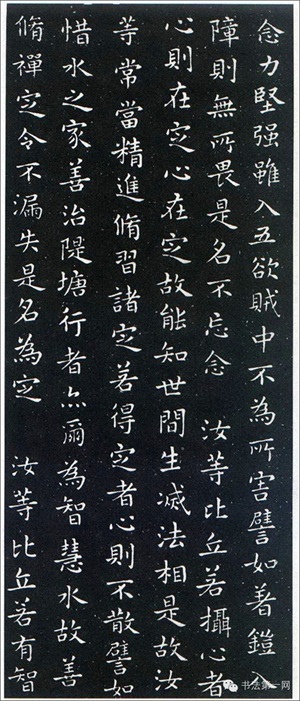 念力堅强雖入五欲賊中不為所害譬如著鎧入
障則無所畏是名不忘念 汝等比丘若攝心者
心則在定心在定故能知世間生滅法相是故汝
等常當精進脩習諸定若得定者心則不散譬如
惜水之家善治隄塘行者亦爾為智慧水故善
脩禪定令不漏失是名為定 汝等比丘若有智
书法第一网